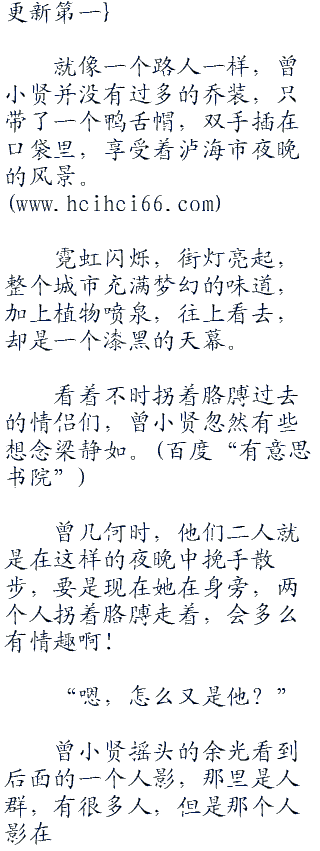 更新第一}
就像一个路人一样，曾
小贤并没有过多的乔装，只
带了一个鸭舌帽，双手插在
口袋里，享受着泸海市夜晚
的风景。
(www.hcihci66.com)
霓虹闪烁，街灯亮起，
整个城市充满梦幻的味道，
加上植物喷泉，往上看去，
却是一个漆黑的天幕。
看着不时拐着胳膊过去
的情侣们，曾小贤忽然有些
想念梁静如。(百度“有意思
书院”)
曾几何时，他们二人就
是在这样的夜晚中挽手散
步，要是现在她在身旁，两
个人拐着胳膊走着，会多么
有情趣啊！
“嗯，怎么又是他？”
曾小贤摇头的余光看到
后面的一个人影，那里是人
群，有很多人，但是那个人
影在